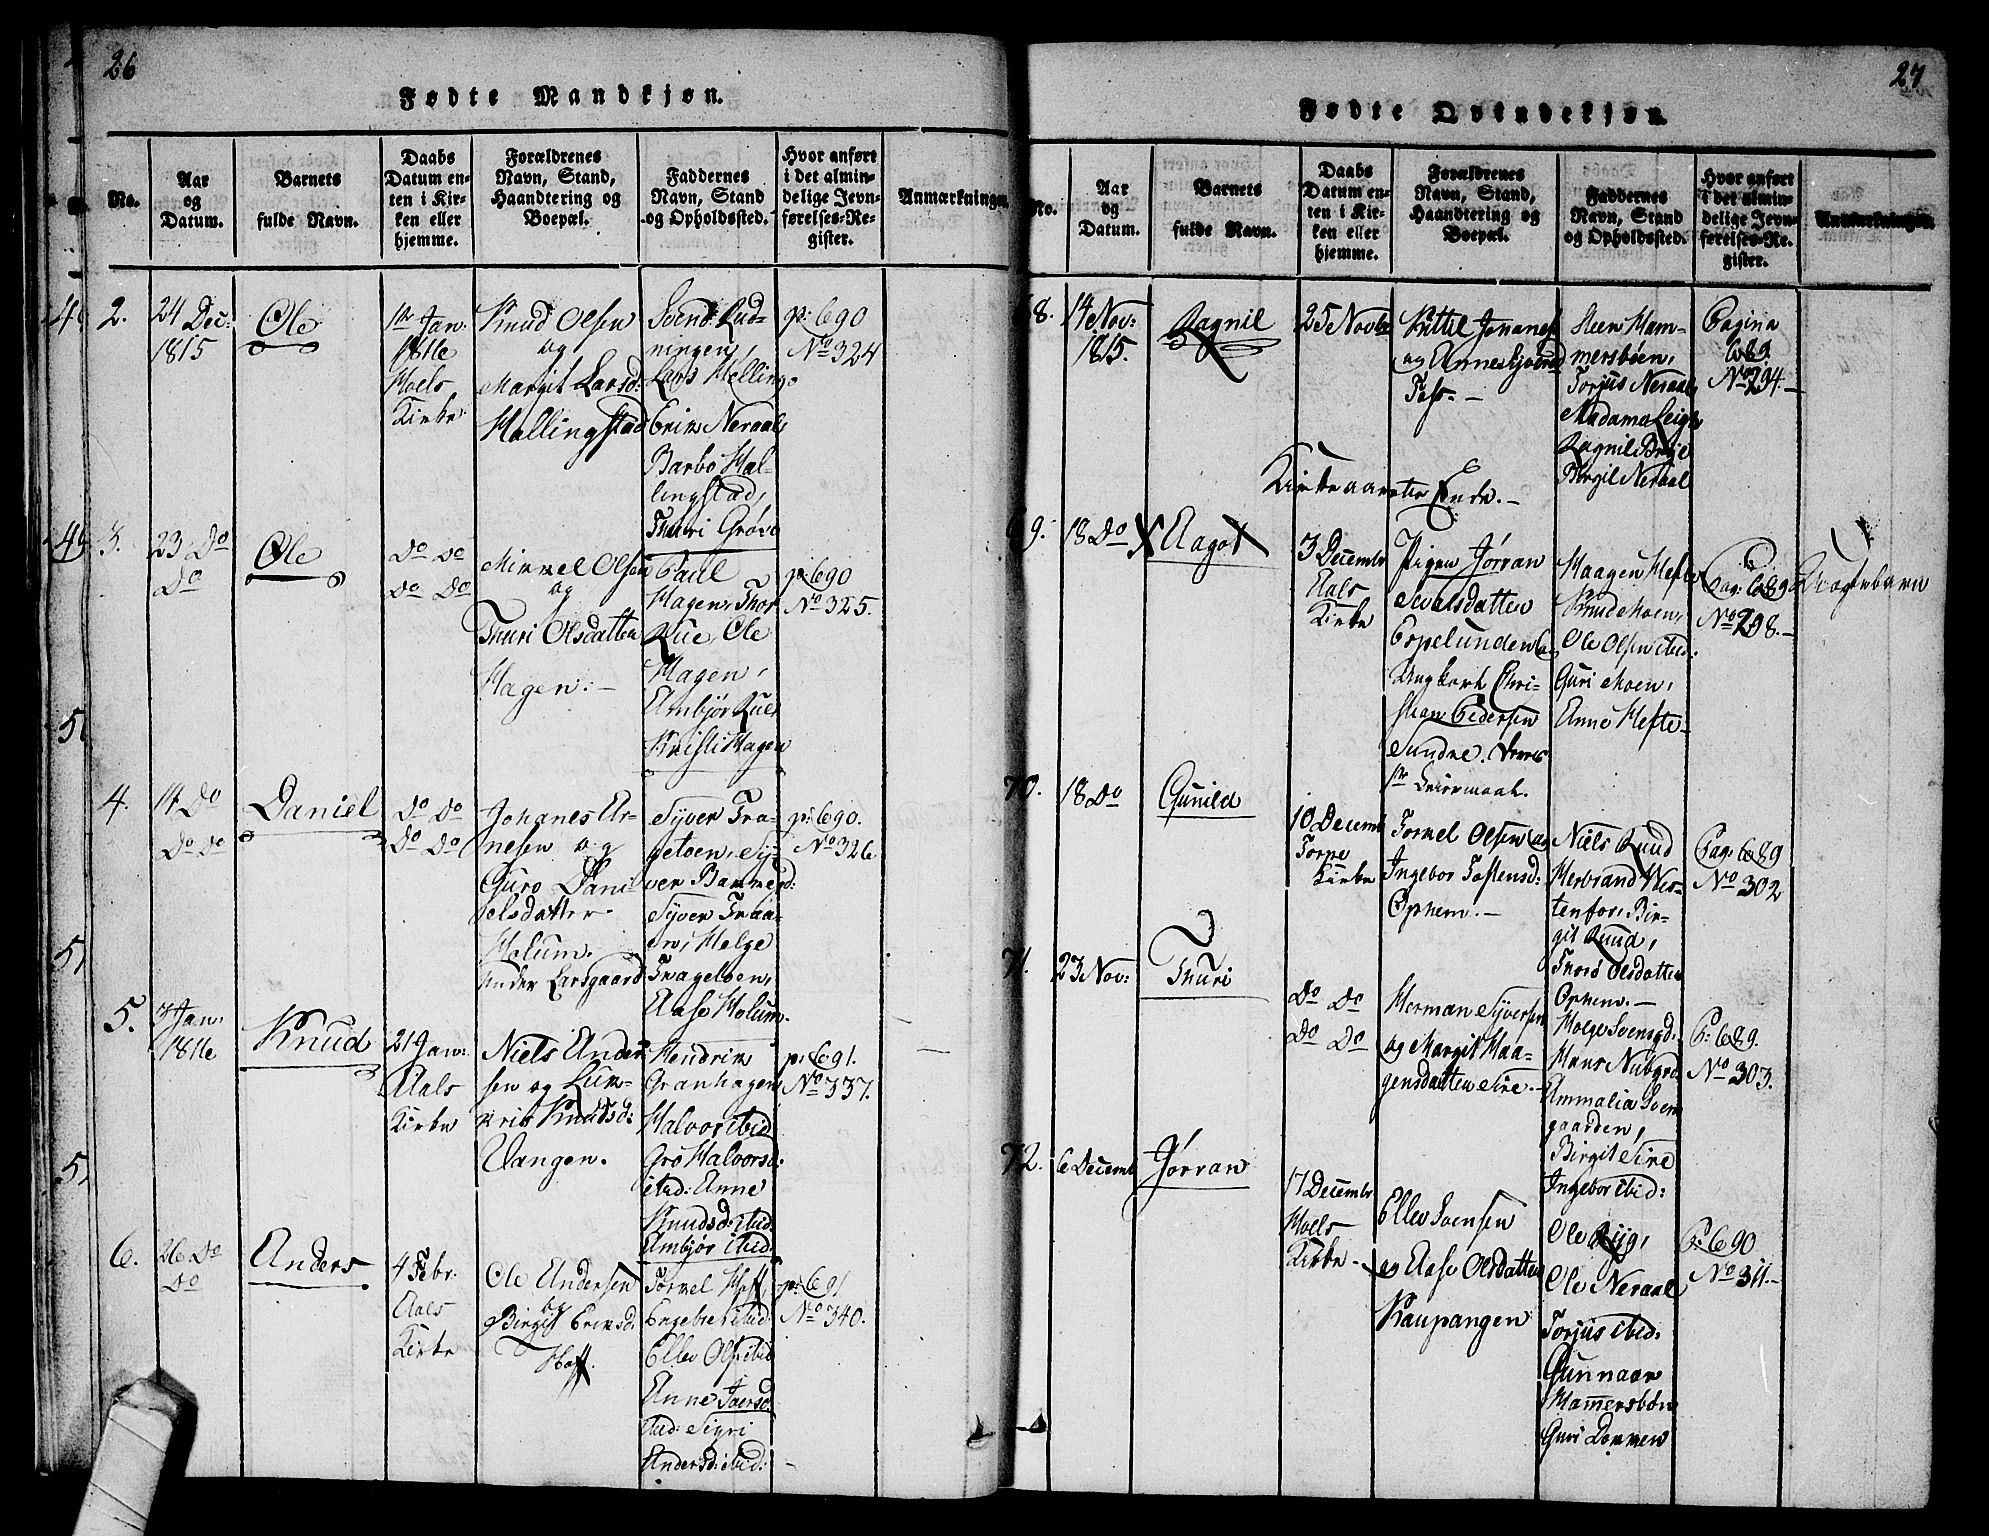 26
Fødte Mandkjøn.
No.
Aar
og
Datum.
Barnets
fulde Navn.
Daabs
Datum en-
ten i Kir-
ken eller
hjemme.
Forældrenes
Navn, Stand,
Haandtering og
Boepæl.
Faddernes
Navn, Stand
og Opholdssted.
Hvor anført
i det almin-
delige Jevn-
førelses-Re-
gister.
Anmærkninger
2.
24 Dec:
1815
Ole
1ste Jan
1816
Hoels
Kirke
Knud Olsen
og
Margit Larsd:
Hallingstad
Svend Lud-
ningen,
Lars Helling
Erik Neraal,
Barbo Hal-
lingstad,
Thuri Grøvo
p: 690
No 324
3.
23 Do
Do
Ole
Do Do
Do Do
Mikkel Olsen
og
Thuri Olsdatter
Hagen.-
Paul
Hagen, Thor
Rue Ole
Hagen,
Ambjør Rue
Kristi Hagen
p: 690
No 325.
4.
14 Do
Do Do
Daniel
Do Do
Do Do
Johanes Ar-
nesen og
Guro Dani-
elsdatter
Holum.
under Larsgaard
Syver Tra-
getoen, Sy-
ver Bammegd:
Syver Traa-
en, Helge
Trageteen,
Aase Holum.
p: 690.
No 326
5.
3 Jan.
1816
Knud
21 Jan:
Aals
Kirke
Niels Ander
sen og Luk-
kris Knudsd:
Vangen.
Hendrik
Granhagen
Halvor ibid
Gro Halvorsd:
ibid: Anne
Knudsd: ibid
Ambjør ibid:
p: 691.
No 337.
6.
26 Do
Do
Anders
4 Febr.
Aals
Kirke
Ole Andersen
og
Birgit Eriksd:
Hoff.
Torkel Hoff,
Engebret ibid:
Ellev Ols: ibid
Anne Iversd:
ibid: Sigri
Andersd: ibid:
p: 691
No 340.
27
Fødte Qvindekjøn.
No.
Aar
og
Datum.
Barnets
fulde Navn.
Daabs
Datum en-
ten i Kir-
ken eller
hjemme.
Forældrenes
Navn, Stand,
Haandtering og
Boepæl.
Faddernes
Navn, Stand
og Opholdssted.
Hvor anført
i det almin-
delige Jevn-
førelses-Re-
gister.
Anmærkninger.
68.
14 Nov:
1815.
Ragnil
25 Novbr
Kittil Jonanes
og Anne Syversd
Tefs.-
Steen Ham-
mersbøen,
Torjus Neraal
Madame Leigh
Ragnil Brye
Birgit Neraal
Pagina
689.
No 294.-
Kirkeaarets Ende.-
69.
18 Do
Aagot
3 Decembr
Aals
Kirke
Pigen Jørran
Nielsdatter
Espelunden og
Ungkarl Chri-
stian Pedersen
Sundre. Deres
1ste Leiermaal.
Haagen Hefte
Knud Moen,
Ole Olsen ibid:
Guri Moen,
Anne Hefte-
Pag: 689
No 298.-
Uægtebarn
70.
18 Do
Gunild
10 Decemb
Torpe
Kirke
Torkel Olsen og
Ingebor Tostensd:
Ophem.-
Niels Ruud
Herbrand Wes-
tenfor, Bir-
git Ruud,
Thorø Olsdatter
Ophem.-
Pag: 689
No 302
71.
23 Nov:
Thuri
Do Do
Do Do
Herman Syversen
og Margit Haa-
gensdatter Sire.-
Holge Svensgd:
Hans Nubgrd
Ammalia Sven
gaarden,
Birgit Sire
Ingebor ibid:
P: 689.
No 303.
72.
6 Decemb
Jørran
17 Decembr
Hoels
Kirke
Ellev Svensen
og Aase Olsdatter
Kaupangen
Ole Ryg,
Ole Neraal
Torjus ibid:
Gunnaar
Hammersbøn
Guri Lokken
P: 690
No 311.-